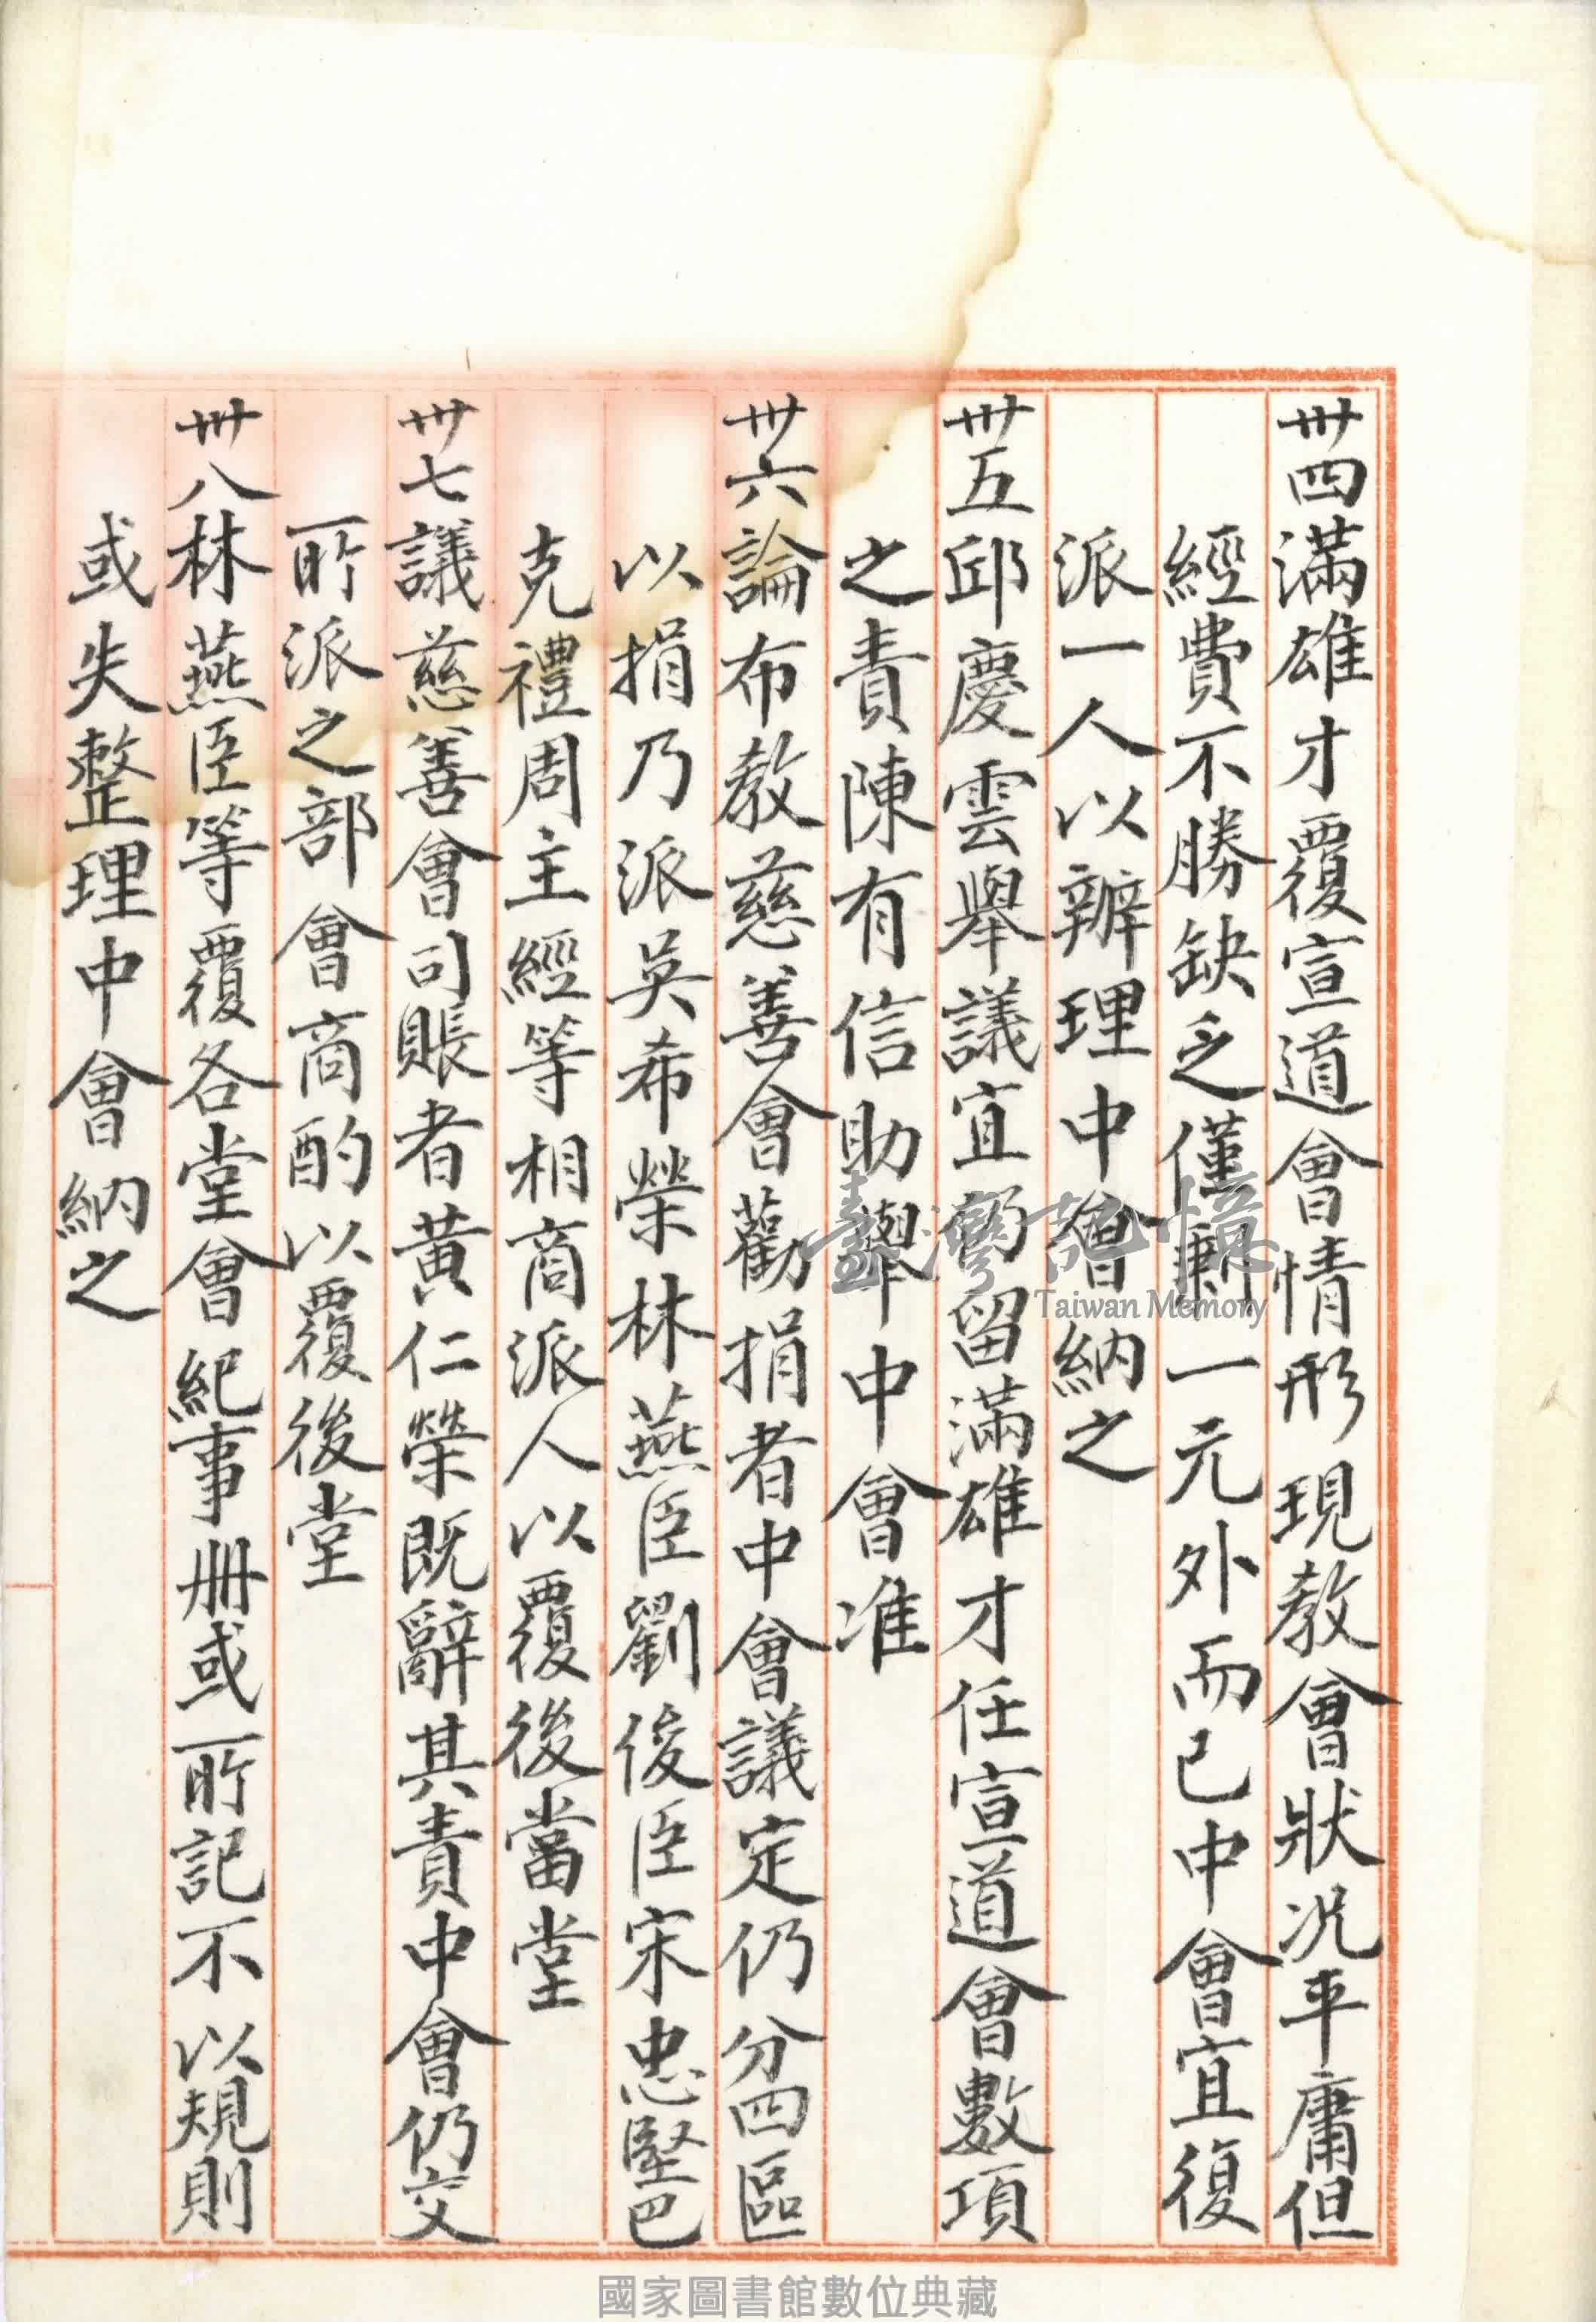 卅四滿雄才覆宣道會情形現教會狀況平庸但
經費不勝缺乏僅剩一元外而已中會宜復
派一人以辦理中會納之
卅五邱慶雲舉議宜留滿雄才任宣道會數項
之責陳有信助舉中會准
卅六論布教慈善會勸捐者中會議定仍分四區
以捐乃派吳希榮林燕臣劉俊臣宋忠堅巴
克禮周主經等相商派人以覆後當堂
卅七議慈善會司賬者黃仁榮既辭其責中會仍交
所派之部會商酌以覆後堂
卅八林燕臣等覆各堂會紀事册或所記不以規則
或失整理中會納之
臺灣記憶
Taiwan Memory
國家圖書館數位典藏